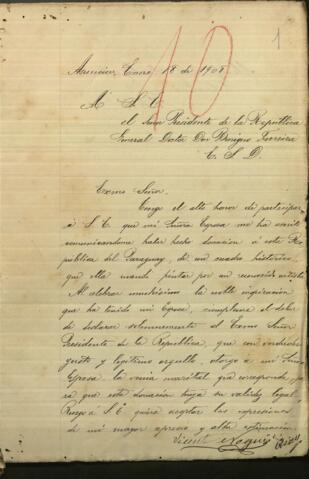 10
1
Asuncion, Enero 18 de 1908
A S. E.
el Señor Presidente de la Republica
General Doctor Don Benigno Ferreira
E. S. D.
Exmo Señor.
Tengo el alto honor de participar
á S. E. que mi Señora Esposa me ha escrito
comunicandome haber hecho donacion á esta Re
publica del Paraguay, de un cuadro historico,
que ella mandó pintar por un reconocido artista
Al celebrar muchisimo la noble inspiracion
que ha tenido mi Esposa, cumpleme el deber
de declarar solemnemente al Exmo Señor
Presidente de la Republica, que con verdadero
gusto y legitimo orgullo, otorgo a mi Señora
Esposa la venia marital que corresponde, pa
ra que esta donacion tenga su validez legal.
Ruego a S. E. quiera aceptar las expresiones
de mi mayor aprecio y alta estimacion